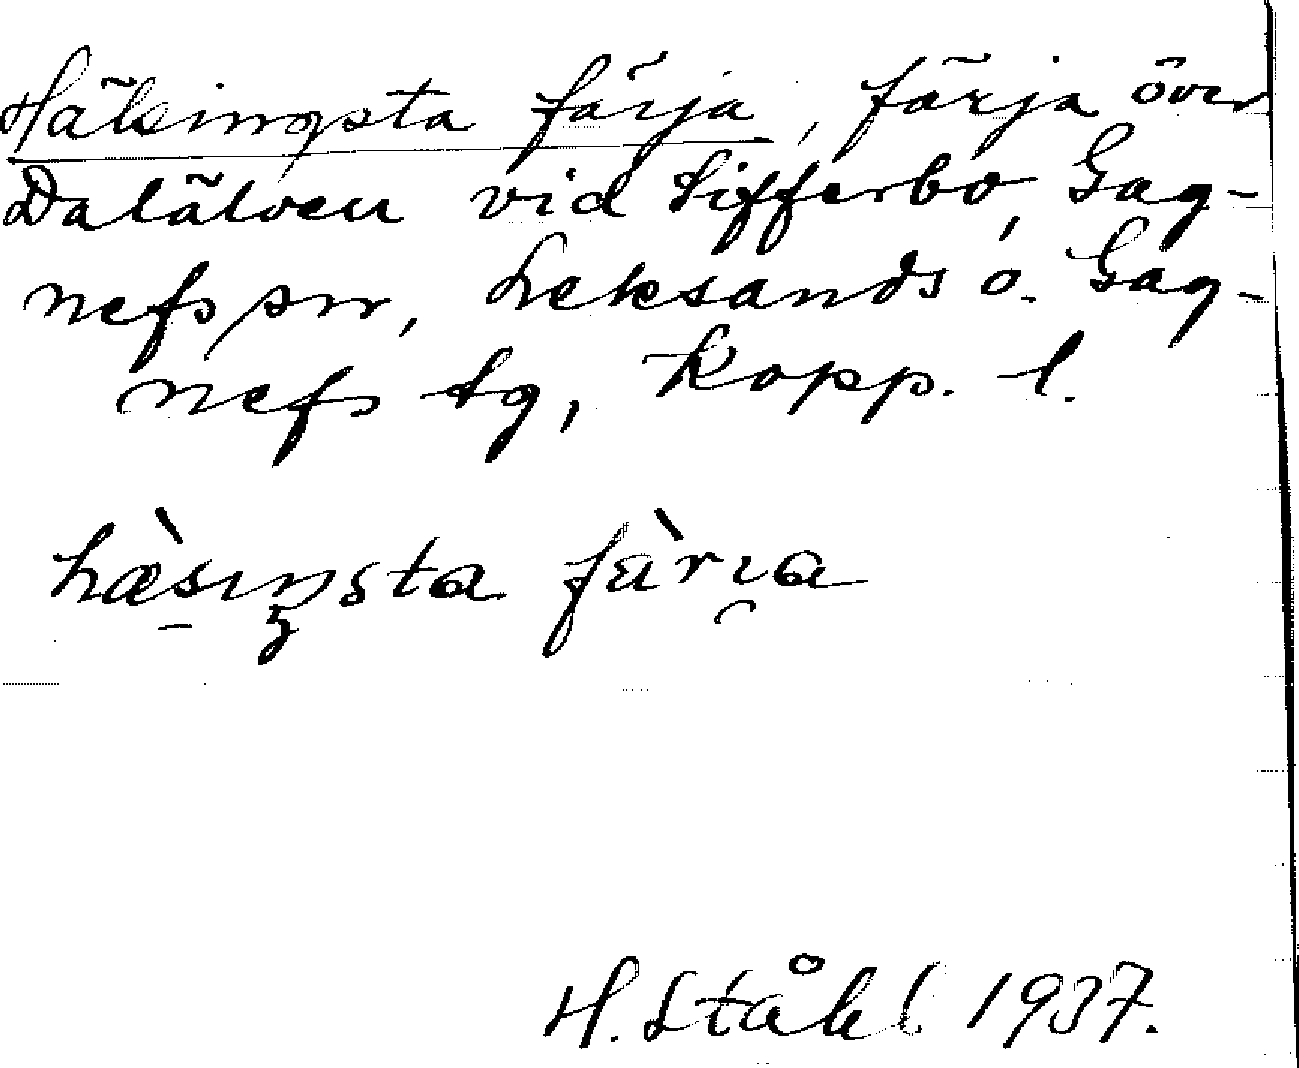 Hälsingsta färja, färja över
Dalälven vid Sifferbo, Gag-
nefs sn, Leksands o. Gag-
nefs tg, Kopp. l.
hæ̀sıŋsta fàrı̯a
H. Ståhl 1937.